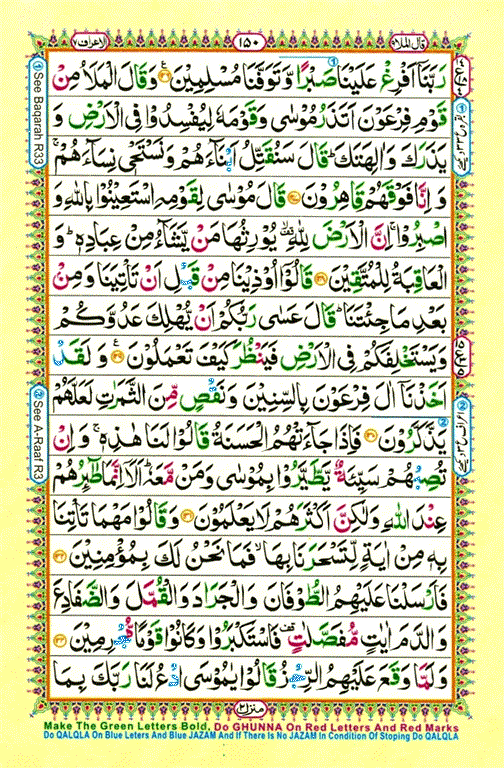 قال الملا ۹
۱۵۰
الاعراف ۷
رَبَّنَاۤ اَفْرِغْ عَلَیْنَا صَبْرًا وَّ تَوَفَّنَا مُسْلِمِیْنَ وَ قَالَ الْمَلَاُ مِنْ
قَوْمِ فِرْعَوْنَ اَتَذَرُ مُوْسٰی وَ قَوْمَهٗ لِیُفْسِدُوْا فِی الْاَرْضِ وَ
یَذَرَكَ وَ اٰلِهَتَكَ قَالَ سَنُقَتِّلُ اَبْنَآءَهُمْ وَ نَسْتَحْیٖ نِسَآءَهُمْ
وَ اِنَّا فَوْقَهُمْ قٰهِرُوْنَ قَالَ مُوْسٰی لِقَوْمِهِ اسْتَعِیْنُوْا بِاللّٰهِ وَ
اصْبِرُوْا اِنَّ الْاَرْضَ لِلّٰهِ یُوْرِثُهَا مَنْ یَّشَآءُ مِنْ عِبَادِهٖ وَ
الْعَاقِبَةُ لِلْمُتَّقِیْنَ قَالُوْۤا اُوْذِیْنَا مِنْ قَبْلِ اَنْ تَاْتِیَنَا وَ مِنْ
بَعْدِ مَا جِئْتَنَا قَالَ عَسٰی رَبُّكُمْ اَنْ یُّهْلِكَ عَدُوَّكُمْ
وَ یَسْتَخْلِفَكُمْ فِی الْاَرْضِ فَیَنْظُرَ كَیْفَ تَعْمَلُوْنَ وَ لَقَدْ
اَخَذْنَاۤ اٰلَ فِرْعَوْنَ بِالسِّنِیْنَ وَ نَقْصٍ مِّنَ الثَّمَرٰتِ لَعَلَّهُمْ
یَذَّكَّرُوْنَ فَاِذَا جَآءَتْهُمُ الْحَسَنَةُ قَالُوْا لَنَا هٰذِهٖ وَ اِنْ
تُصِبْهُمْ سَیِّئَةٌ یَّطَّیَّرُوْا بِمُوْسٰی وَ مَنْ مَّعَهٗ اَلَاۤ اِنَّمَا طٰٓئِرُهُمْ
عِنْدَ اللّٰهِ وَ لٰكِنَّ اَكْثَرَهُمْ لَا یَعْلَمُوْنَ وَ قَالُوْا مَهْمَا تَاْتِنَا
بِهٖ مِنْ اٰیَةٍ لِّتَسْحَرَنَا بِهَا فَمَا نَحْنُ لَكَ بِمُؤْمِنِیْنَ
فَاَرْسَلْنَا عَلَیْهِمُ الطُّوْفَانَ وَ الْجَرَادَ وَ الْقُمَّلَ وَ الضَّفَادِعَ
وَ الدَّمَ اٰیٰتٍ مُّفَصَّلٰتٍ فَاسْتَكْبَرُوْا وَ كَانُوْا قَوْمًا مُّجْرِمِیْنَ
وَ لَمَّا وَقَعَ عَلَیْهِمُ الرِّجْزُ قَالُوْا یٰمُوْسَی ادْعُ لَنَا رَبَّكَ بِمَا
منزل ۲
① See Baqarah R33
② See A-Raaf R3
Make The Green Letters Bold, Do GHUNNA On Red Letters And Red Marks
Do QALQLA On Blue Leters And Blue JAZAM And If There Is No JAZAM In Condition Of Stoping Do QALQLA